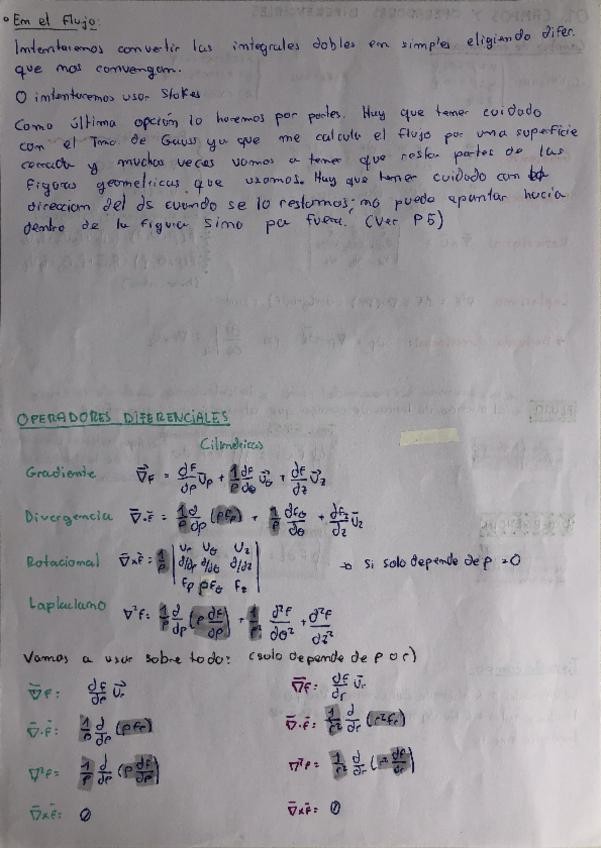 • En el flujo:
Intentaremos convertir las integrales dobles en simples eligiendo difer.
que nos convengan.
O intentaremos usar Stokes
Como última opción lo haremos por partes. Hay que tener cuidado
con el Tma. de Gauss ya que me calcula el flujo por una superficie
cerrada y muchas veces vamos a tener que restar partes de las
figuras geometricas que usamos. Hay que tener cuidado con
direccion del ds cuando se lo restamos; no puede apuntar hacia
dentro de la figura sino por fuera. (Ver P5)
OPERADORES DIFERENCIALES
Cilindricas
Gradiente ∇⃗F = dF/dρ U⃗ρ + 1/ρ dF/dθ U⃗θ + dF/dz U⃗z
Divergencia ∇⃗·F⃗ = 1/ρ d/dρ (ρFρ) + 1/ρ dFθ/dθ + dFz/dz U⃗z
Rotacional ∇⃗xF⃗ = 1/ρ | Ur Uθ Uz | → si solo depende de ρ = 0
d/dr d/dθ d/dz
Fρ ρFθ Fz
Laplaciano ∇²F = 1/ρ d/dρ (ρ dF/dρ) + 1/ρ² d²F/dθ² + d²F/dz²
Vamos a usar sobre todo: (solo depende de ρ o r)
∇⃗F: dF/dr U⃗r ∇⃗F: dF/dr U⃗r
∇⃗·F⃗: 1/ρ d/dρ (ρFr) ∇⃗·F⃗: 1/r² d/dr (r²Fr)
∇²F: 1/ρ d/dρ (ρ dF/dρ) ∇²F: 1/r² d/dr (r² dF/dr)
∇⃗xF⃗: 0 ∇⃗xF⃗: 0